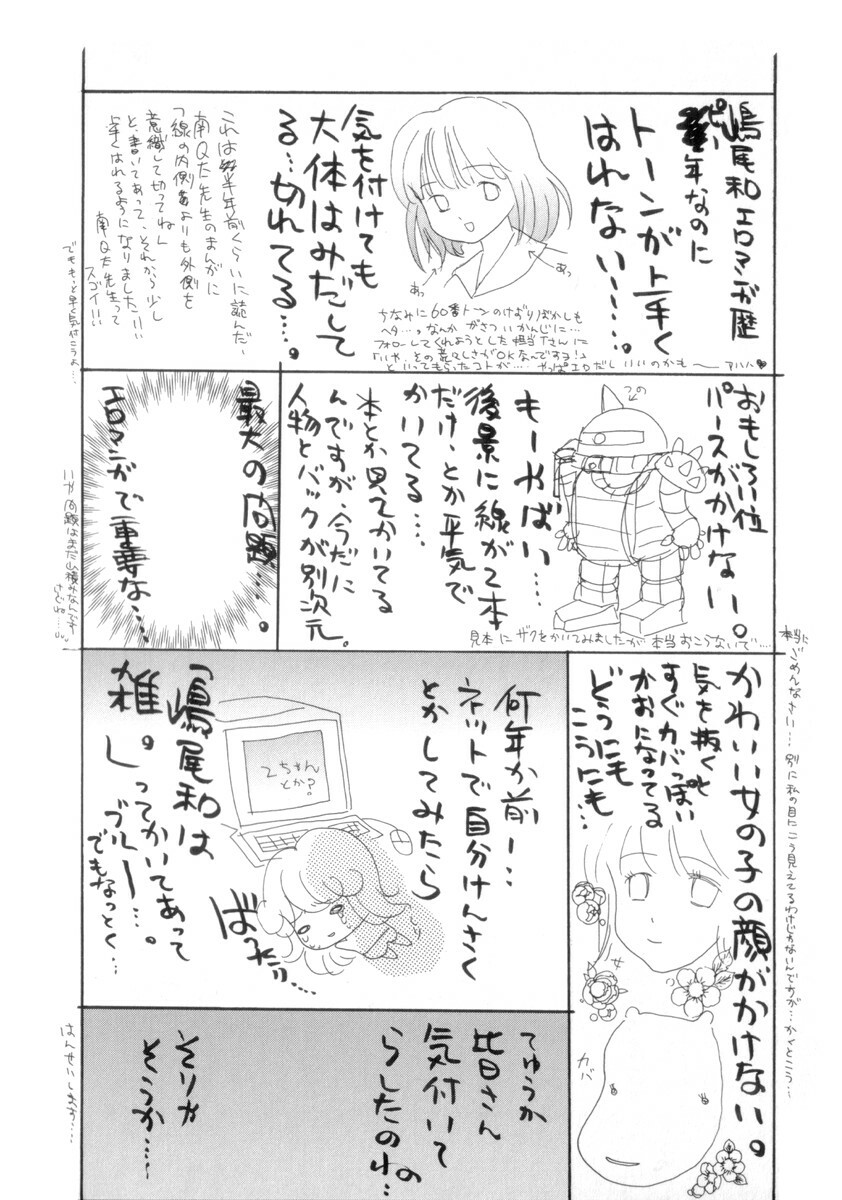 嶋尾和エロマンガ歴
ピー年なのに
トーンが上手く
はれない……。
気を付けても
大体はみだして
る…切れてる…。
あっ
あっ
これは半年前くらいに読んだ、
南Q太先生のまんがに
「線の内側よりも外側を
意識して切ってね」
と、書いてあって、それから少し
上手くはれるようになりました!!!
南Q太先生って
スゴイ!!!
でももっと早く気付こうよ…
ちなみに60番トーンのけずりぼかしも
ヘタ…。なんか がさつい かんじに…
フォローしてくれようとした担当Tさんに
「いや、その荒々しさがOKなんですヨ!」
といってもらったコトが…。やっぱエロだし いいのかも〜 アハハ♥
おもしろい位
パースがかけない。
つの
もーやばい…
後景に線が2本
だけ、とか平気で
かいてる…
本とか見てかいてる
んですが、今だに
人物とバックが別次元。
見本に ザクをかいてみましたが 本当 おこらないで……
最大の問題…。
エロマンガで重要な…
いや問題はまだ山積みなんです
けどね……。
かわいい女の子の顔がかけない。
気を抜くと
すぐカバっぽい
かおになってる
どうにも
こうにも…
女
カバ
本当に
ごめんなさい… 別に私の目に こう見えてるわけじゃないんですが… かくとこう…
何年か前ー…
ネットで自分けんさく
とかしてみたら
2ちゃん
とか?
「嶋尾和は
雑。」ってかいてあって
ブルー…。
でもなっとく…
ばったり…
てゆうか
皆さん
気付いて
らしたのね…
そりゃ
そうか……
はんせいします…